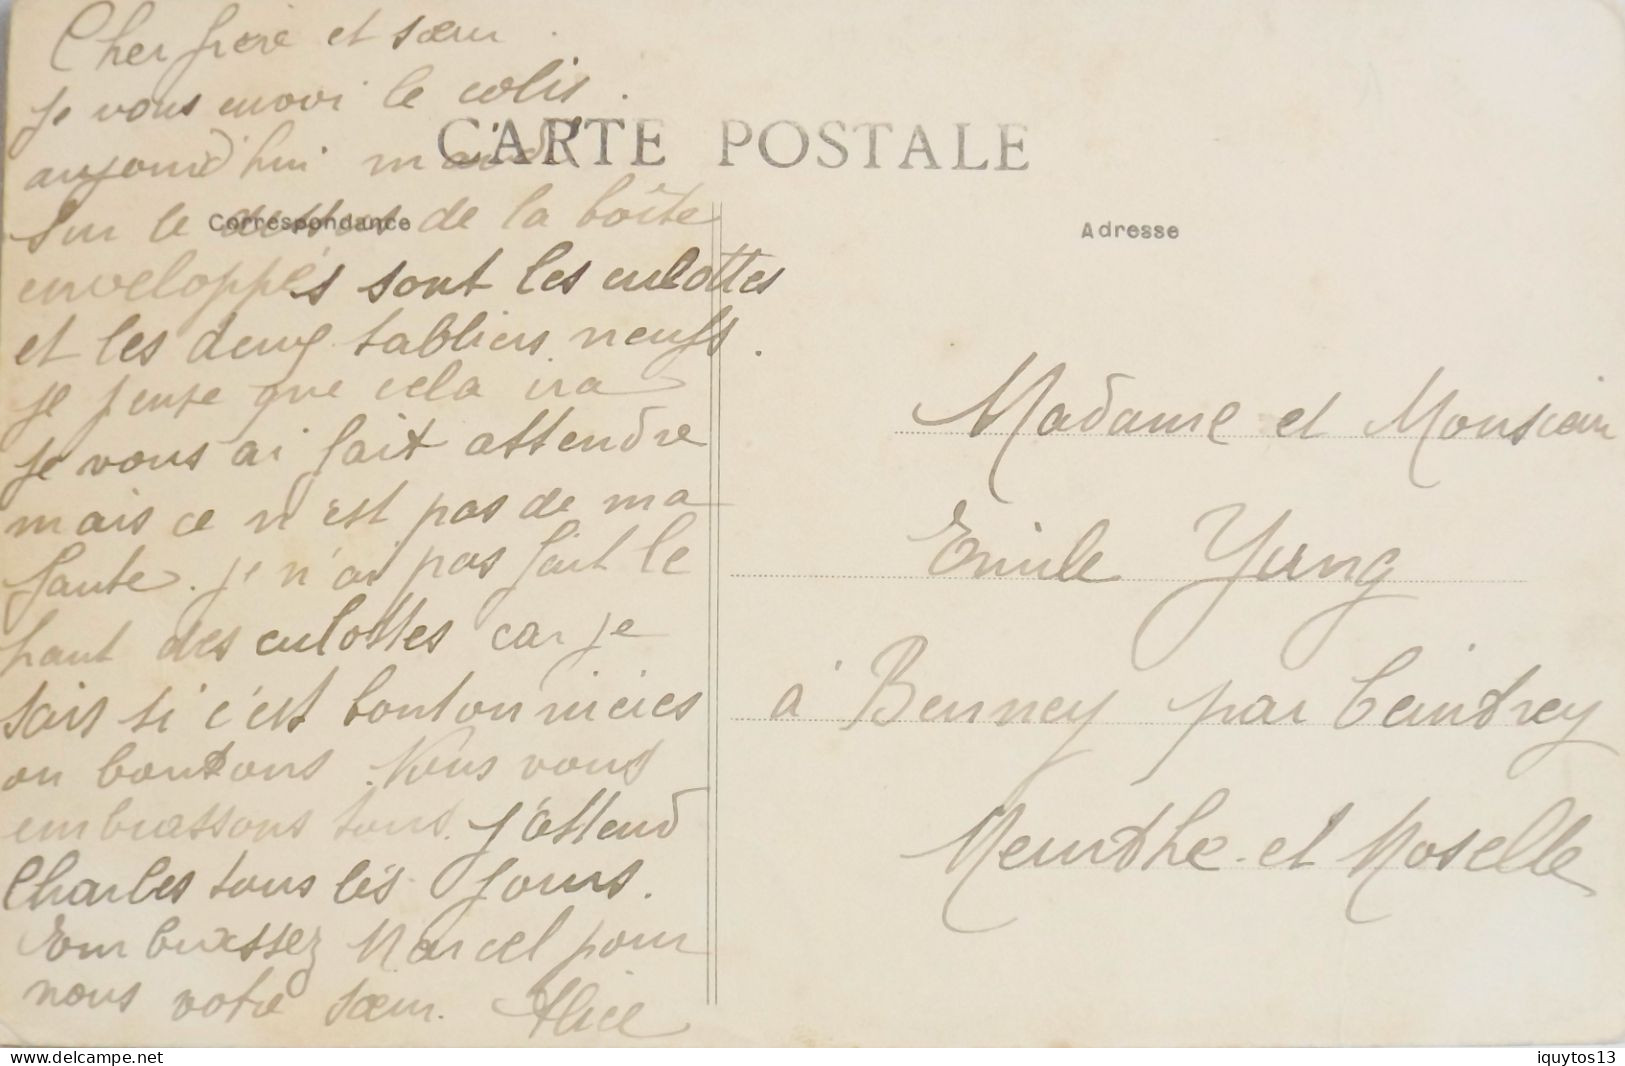 Cher frère et sœur.
je vous envoi le colis.
aujourd'hui mardi
CARTE POSTALE
Correspondance
Adresse
Sur le dessus de la boîte
enveloppés sont les culottes
et les deux tabliers neufs.
je pense que cela ira
je vous ai fait attendre
mais ce n'est pas de ma
faute. je n'ai pas fait le
haut des culottes car je
sais si c'est boutonnieres
ou boutons. Nous vous
embrassons tous. J'attend
Charles tous les jours.
Embrassez Marcel pour
nous votre sœur. Alice
Madame et Monsieur
Emile Yung
à Benney par Ceintrey
Meurthe et Moselle
www.delcampe.net
iquytos13